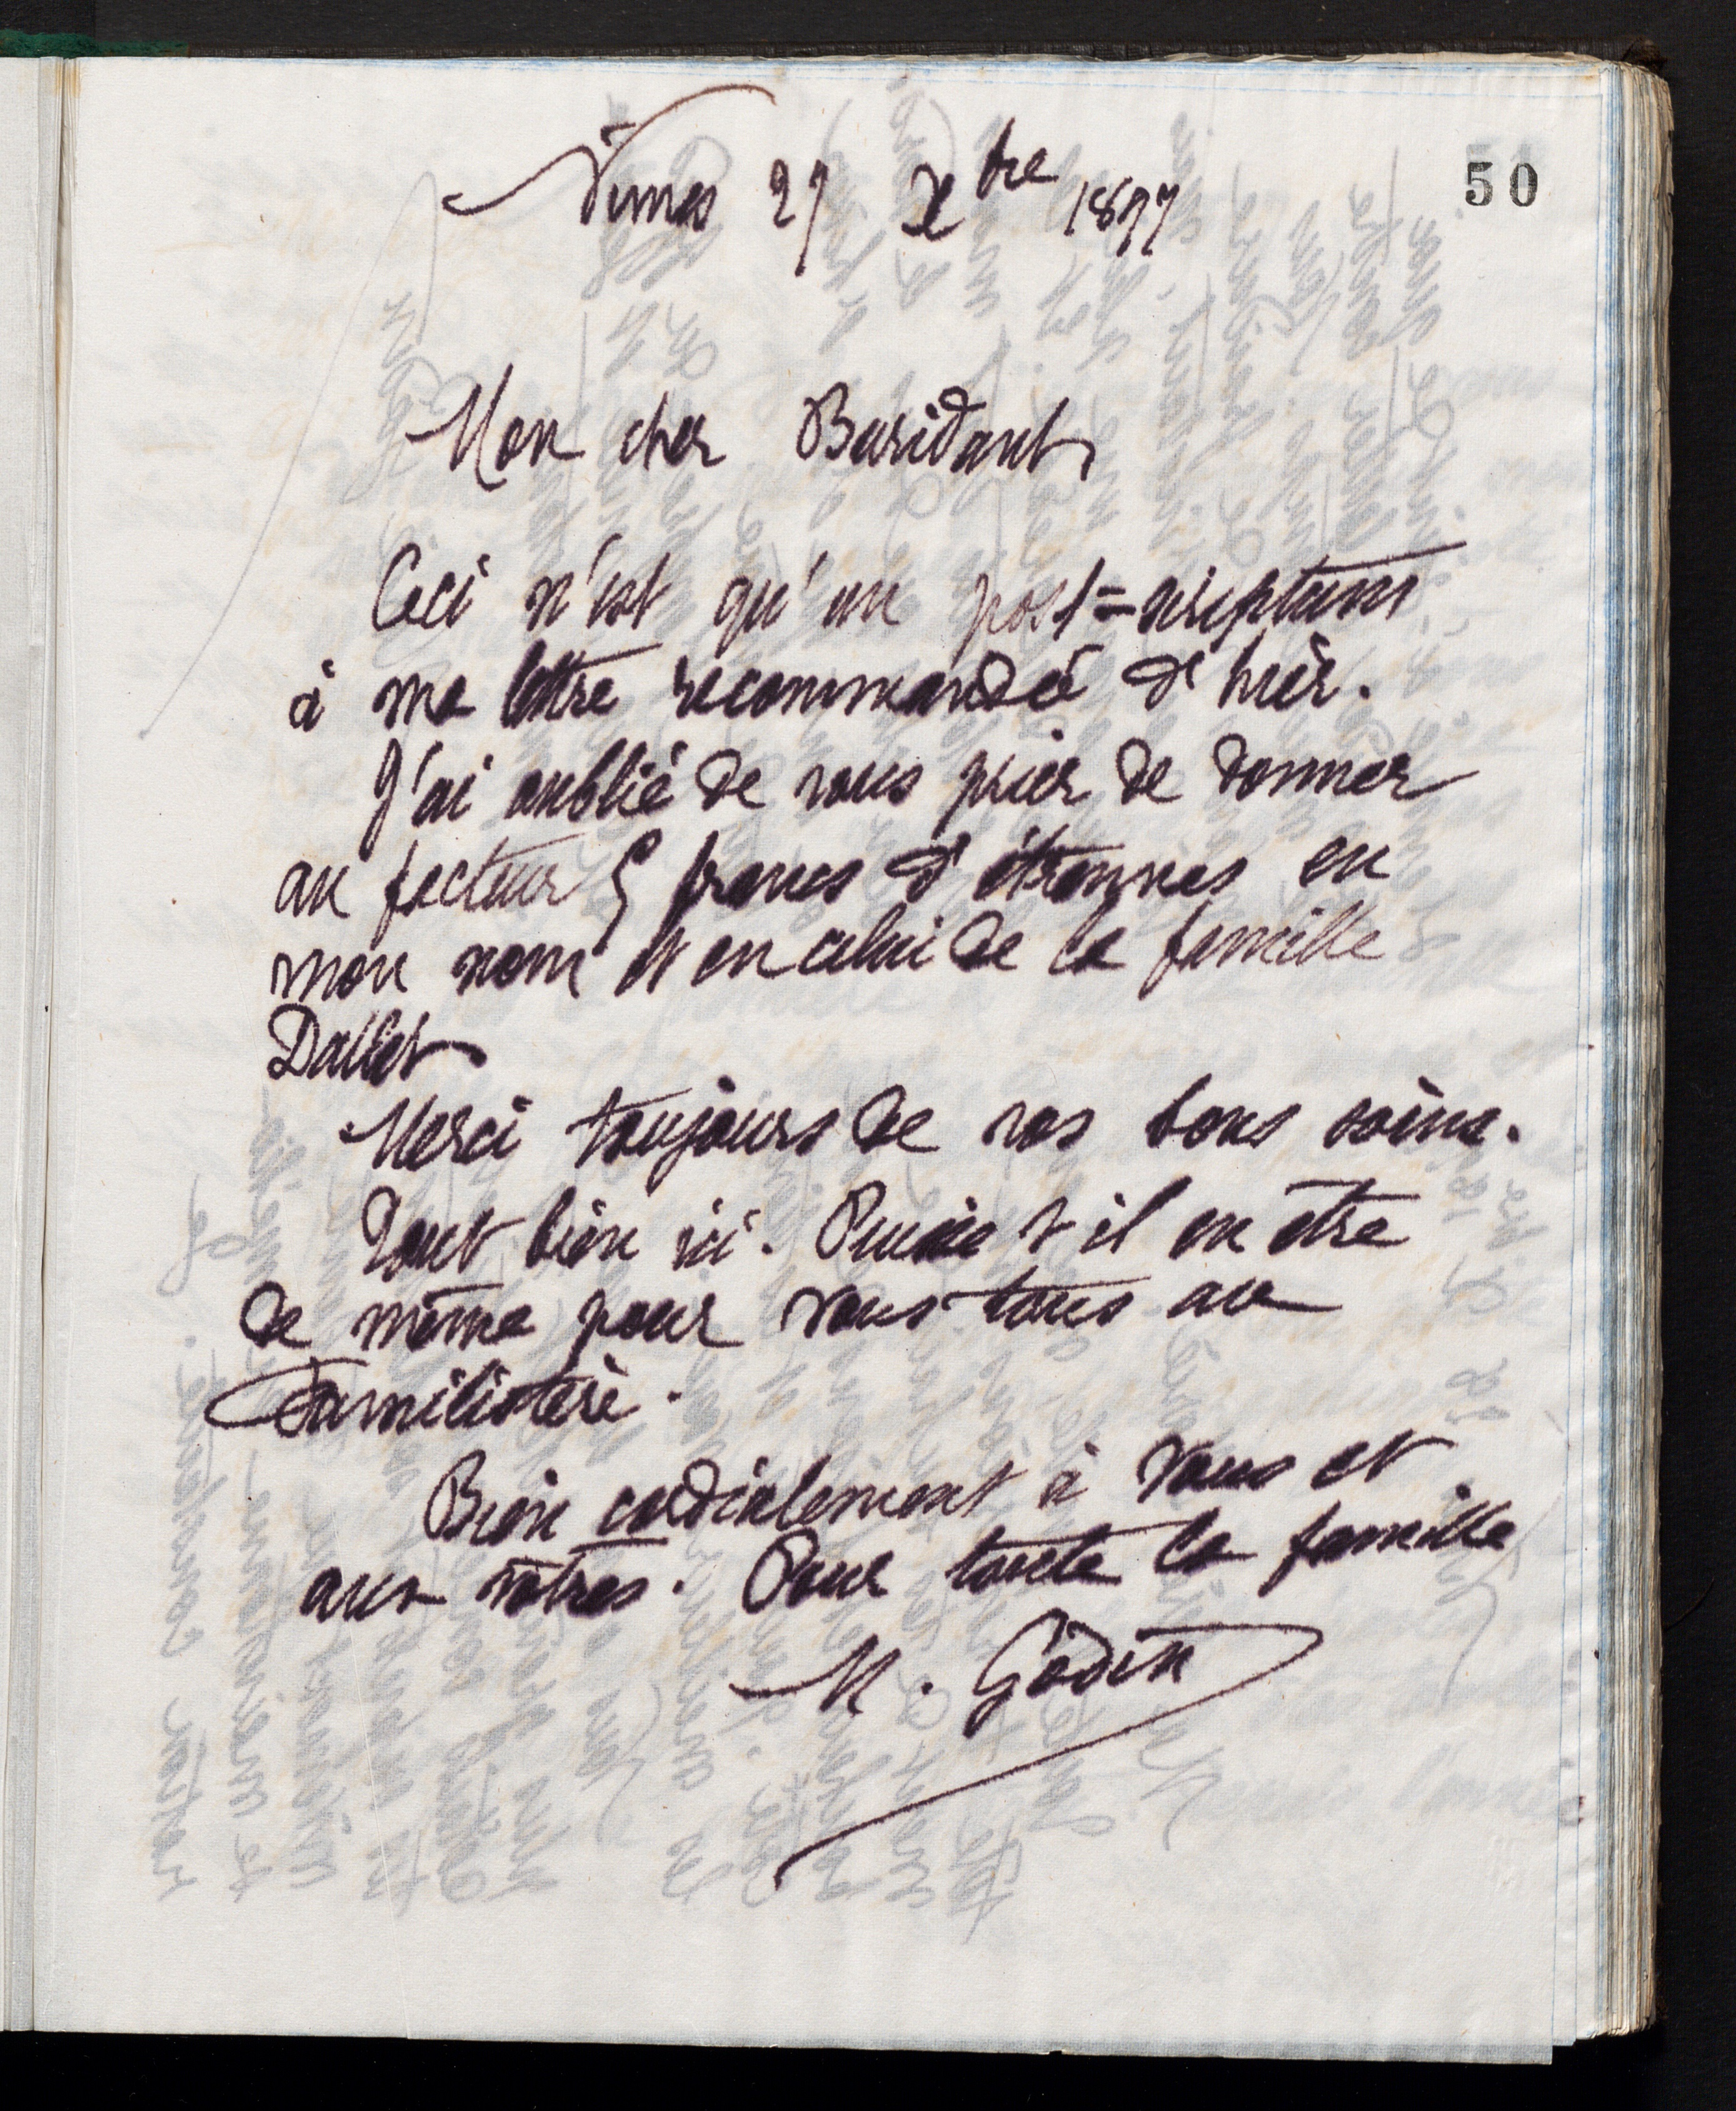 50
Nîmes 27 Xbre 1897
Mon cher Buridant,
Ceci n'est qu'un post=scriptum
à ma lettre recommandée d'hier.
J'ai oublié de vous prier de donner
au facteur 5 francs d'étrennes en
mon nom et en celui de la famille
Dallet
Merci toujours de vos bons soins.
Tout bien ici. Puisse t il en être
de même pour vous tous au
Familistère.
Bien cordialement à vous et
aux vôtres. Pour toute la famille
M. Godin